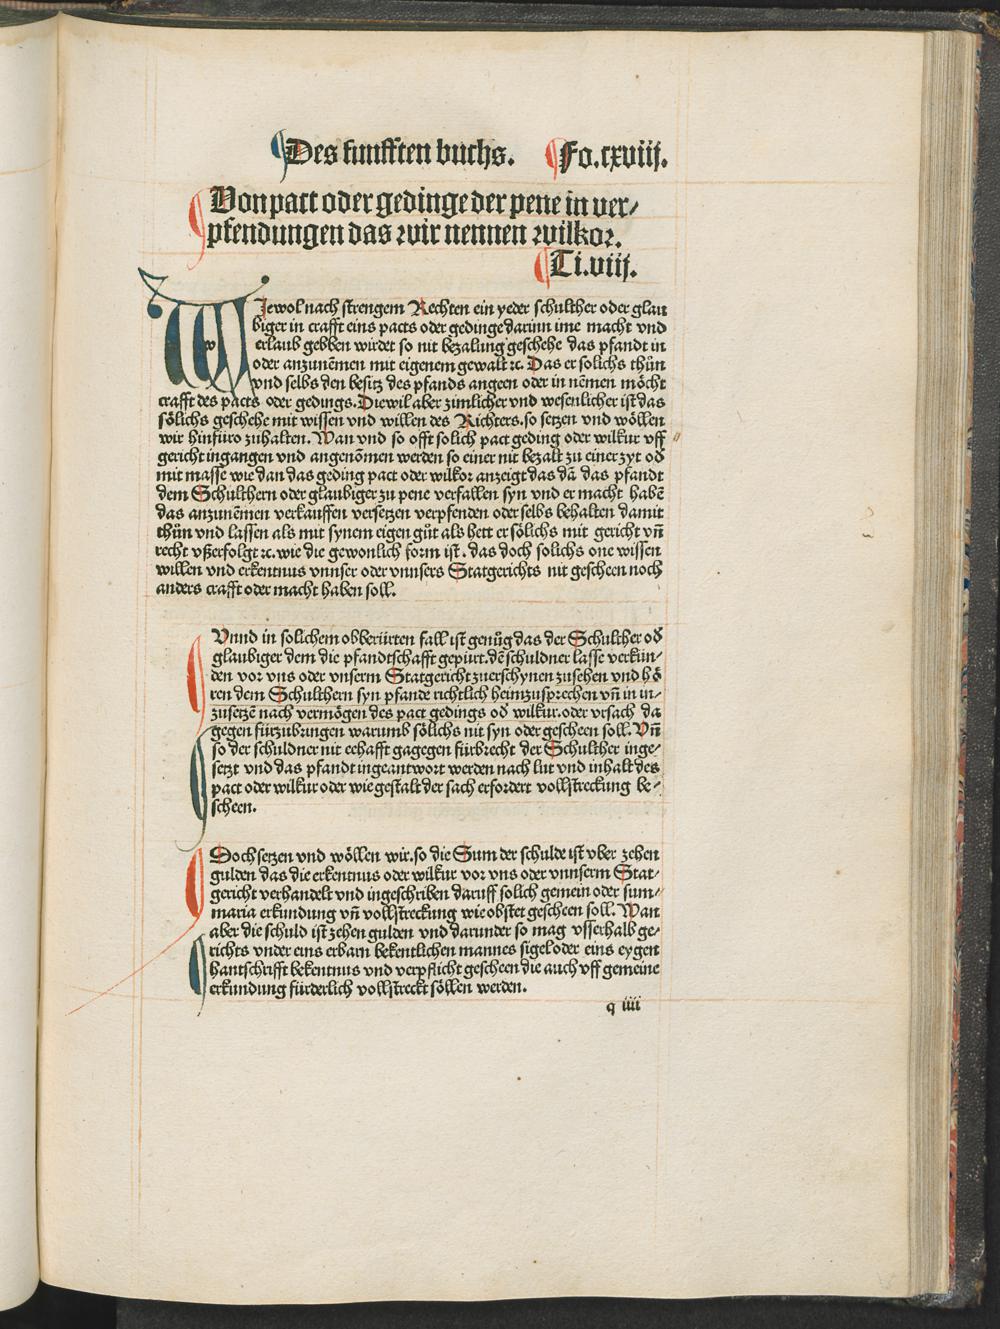 Des funfften buchs. Fo.cxviij.
Von pact oder gedinge der pene in ver⸗
pfendungen das wir nennen wilkor.
Ti.viij.
WJewol nach strengem Rechten ein yeder schulther oder glau
biger in crafft eins pacts oder gedinge darinn ime macht vnd
erlaub gebben wirdet so nit bezalung geschehe das pfandt in
oder anzunēmen mit eigenem gewalt ꝛc. Das er solichs thůn
vnd selbs den besitz des pfands angeen oder in nēmen mȯcht
crafft des pacts oder gedings. Diewil aber zimlicher vnd wesenlicher ist das
sȯlichs geschehe mit wissen vnd willen des Richters. so setzen vnd wȯllen
wir hinfüro zuhalten. Wan vnd so offt solich pact geding oder wilkur vff
gericht ingangen vnd angenōmen werden so einer nit bezalt zu einer zyt od̄
mit masse wie dan das geding pact oder wilkor anzeigt das dā das pfandt
dem Schulthern oder glaubiger zu pene verfallen syn vnd er macht habē
das anzunēmen verkauffen versetzen verpfenden oder selbs behalten damit
thůn vnd lassen als mit synem eigen gůt als hett er sȯlichs mit gericht vn̄
recht vßerfolgt ꝛc. wie die gewonlich form ist. das doch solichs one wissen
willen vnd erkentnus vnnser oder vnnsers Statgerichts nit gescheen noch
anders crafft oder macht haben soll.
Vnnd in solichem obberürten fall ist genůg das der Schulther od̄
glaubiger dem die pfandtschafft gepürt. dē schuldner lasse verkün⸗
den vor vns oder vnserm Statgericht zuerschynen zusehen vnd hȯ
ren dem Schulthern syn pfande richtlich heimzusprechen vn̄ in in⸗
zusetzē nach vermȯgen des pact gedings od̄ wilkur. oder vrsach da
gegen fürzubringen warumb sȯlichs nit syn oder gescheen soll. Vn̄
so der schuldner nit eehafft gagegen fürbrecht der Schulther inge⸗
setzt vnd das pfandt ingeantwort werden nach lut vnd inhalt des
pact oder wilkur oder wie gestalt der sach erfordert vollstreckung be⸗
scheen.
Doch setzen vnd wȯllen wir. so die Sum der schulde ist vber zehen
gulden das die erkentnus oder wilkur vor vns oder vnnserm Stat⸗
gericht verhandelt vnd ingeschriben daruff solich gemein oder sum⸗
maria erkundung vn̄ vollstreckung wie obstet gescheen soll. Wan
aber die schuld ist zehen gulden vnd darunder so mag vsserhalb ge⸗
richts vnder eins erbarn bekentlichen mannes sigel oder eins eygen
hantschrifft bekentnus vnd verpflicht gescheen die auch vff gemeine
erkundung fürderlich vollstreckt sȯllen werden.
q iiii